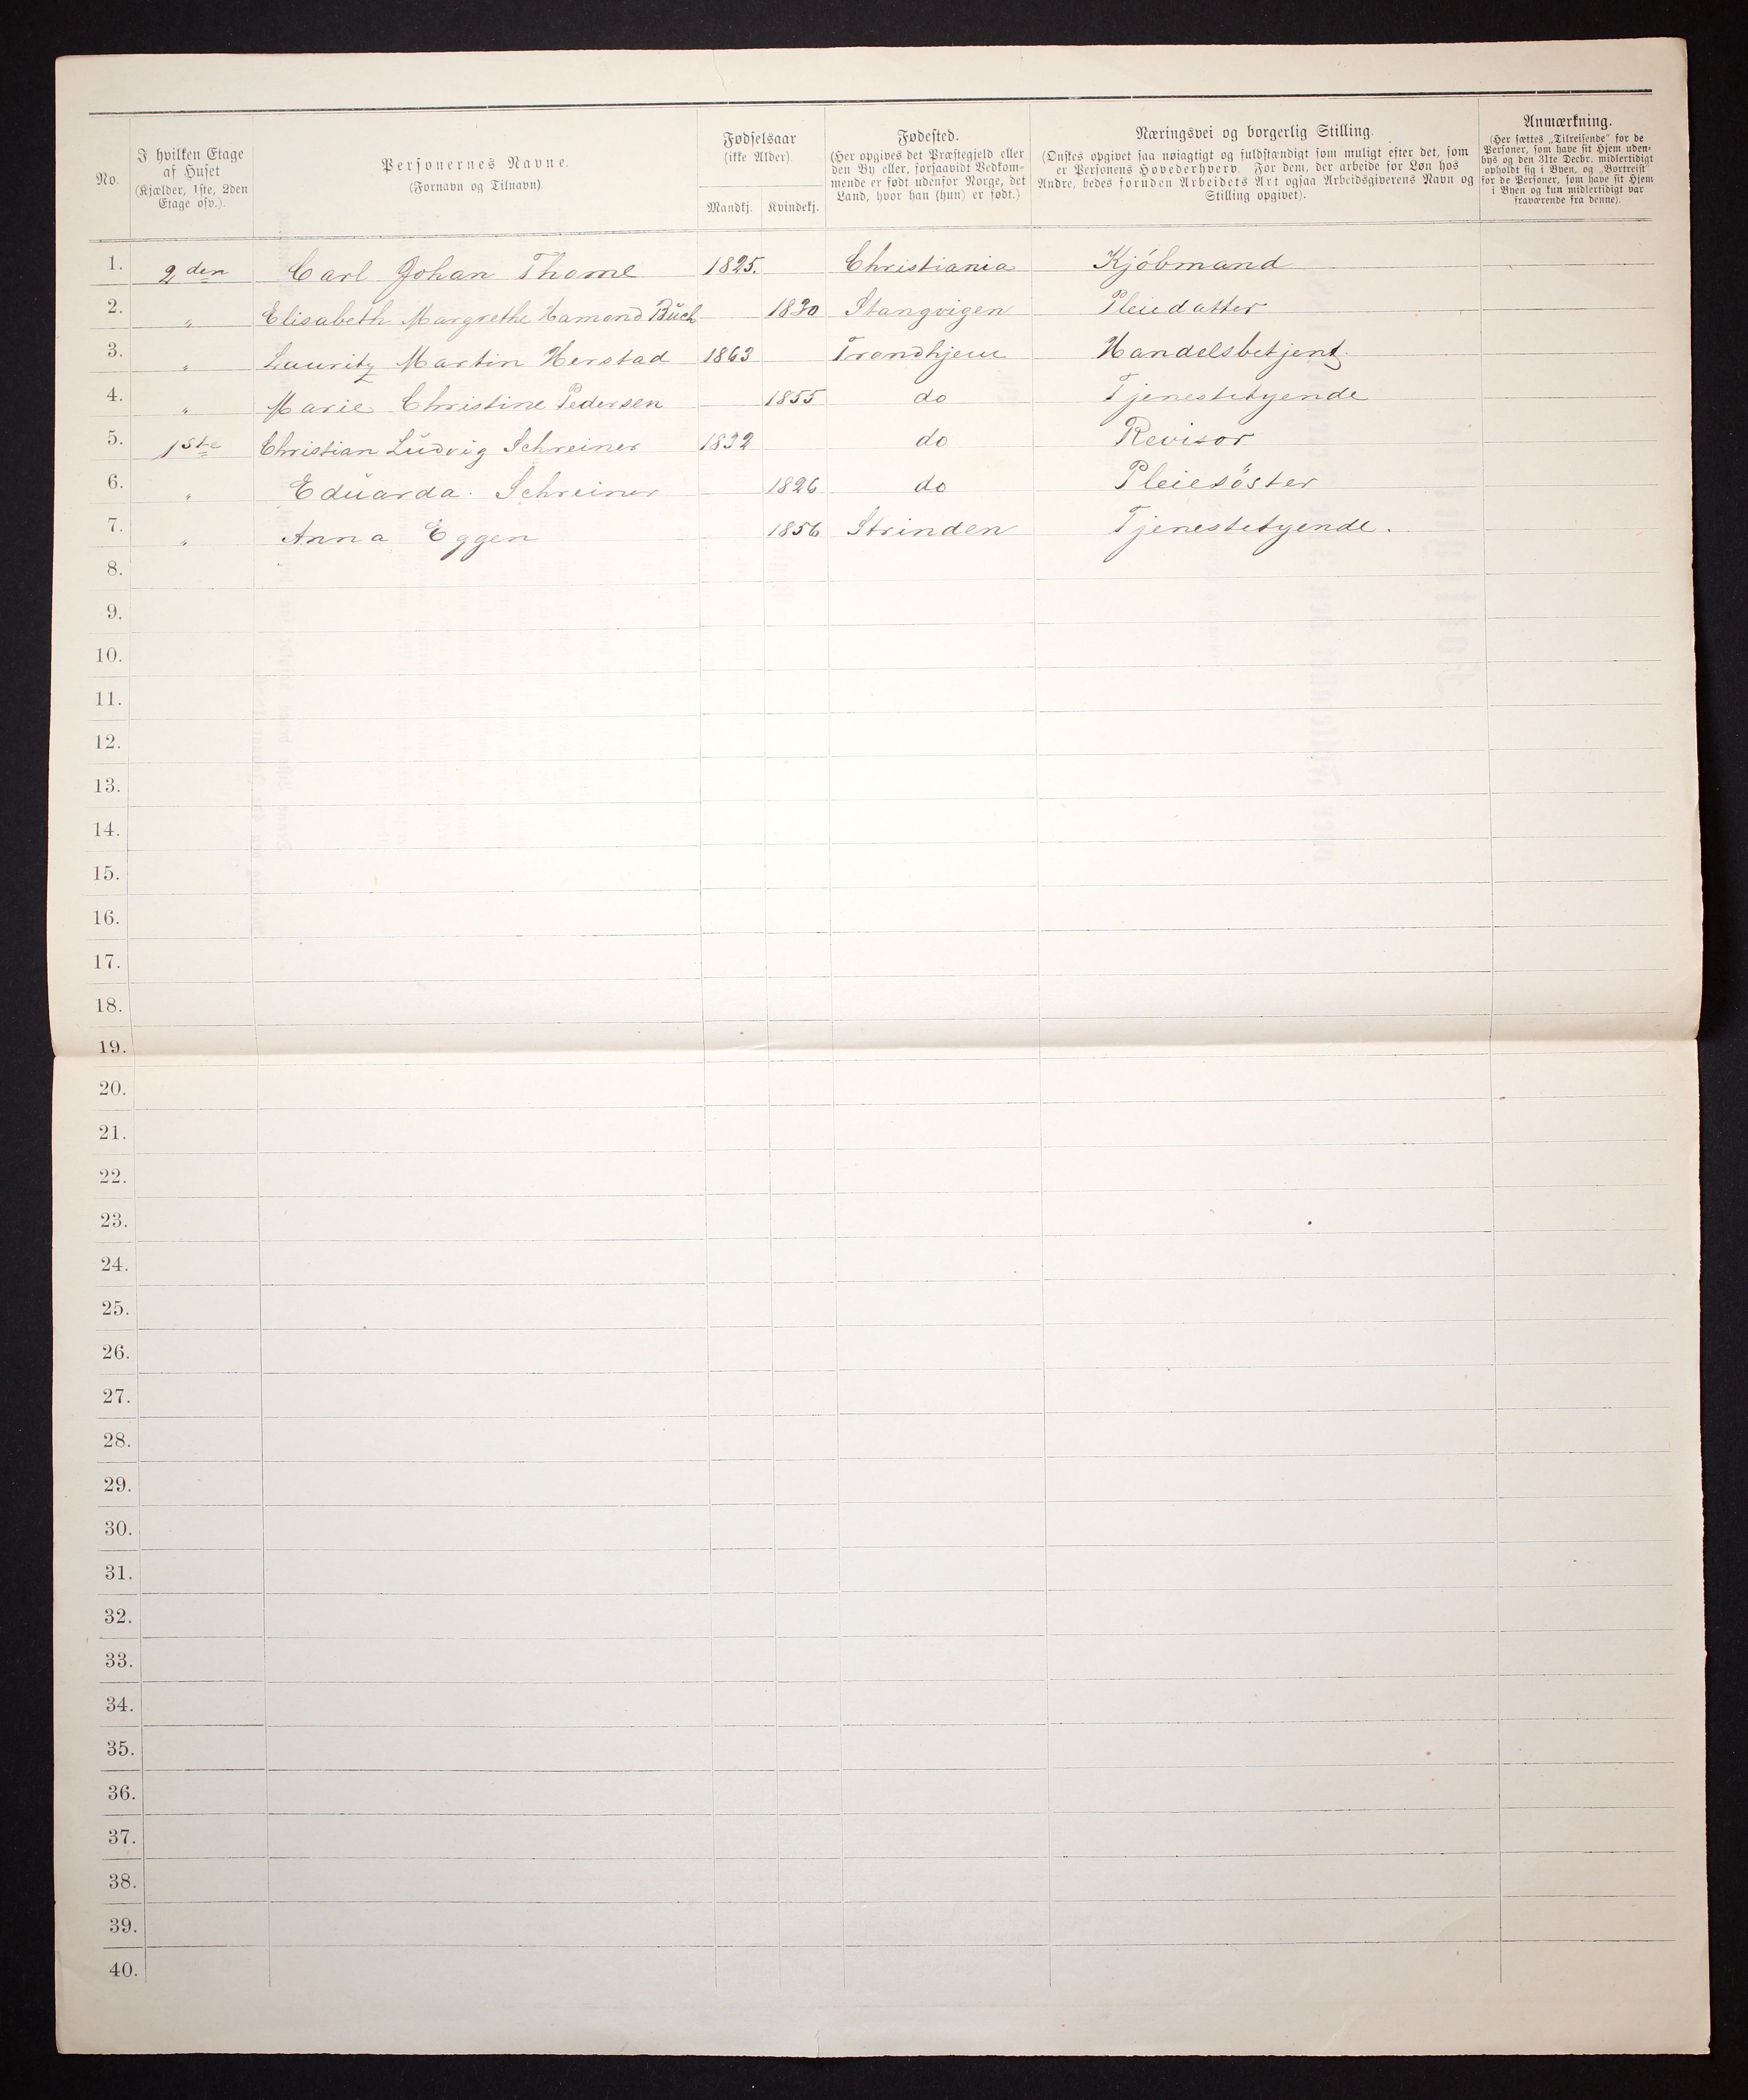 No.
I hvilken Etage
af Huset
(Kjælder, 1ste, 2den
Etage osv.).
Personernes Navne.
(Fornavn og Tilnavn).
Fødselsaar
(ikke Alder).
Mandkj. Kvindekj.
Fødested.
(Her opgives det Præstegjeld eller
den By eller, forsaavidt Vedkom-
mende er født udenfor Norge, det
Land, hvor han (hun) er født.)
Næringsvei og borgerlig Stilling.
(Ønskes opgivet saa nøiagtigt og fuldstændigt som muligt efter det, som
er Personens Hovederhverv. For dem, der arbeide for Løn hos
Andre, bedes foruden Arbeidets Art ogsaa Arbeidsgiverens Navn og
Stilling opgivet).
Anmærkning.
(Her sættes „Tilreisende" for de
Personer, som have sit Hjem uden-
bys og den 31te Decbr. midlertidigt
opholdt sig i Byen, og „Bortreist"
for de Personer, som have sit Hjem
i Byen og kun midlertidigt var
fraværende fra denne).
1. 2den Carl Johan Thome 1825. Christiania Kjöbmand
2. " Elisabeth Margrethe Hamond Buch 1830 Stangvigen Pleiedatter
3. " Lauritz Martin Herstad 1863 Trondhjem Handelsbetjent.
4. " Marie Christine Pedersen 1855 do Tjenestetyende
5. 1ste Christian Ludvig Schreiner 1832 do Revisor
6. " Eduarda Schreiner 1826 do Pleiesöster
7. " Anna Eggen 1856 Strinden Tjenestetyende.
8.
9.
10.
11.
12.
13.
14.
15.
16.
17.
18.
19.
20.
21.
22.
23.
24.
25.
26.
27.
28.
29.
30.
31.
32.
33.
34.
35.
36.
37.
38.
39.
40.